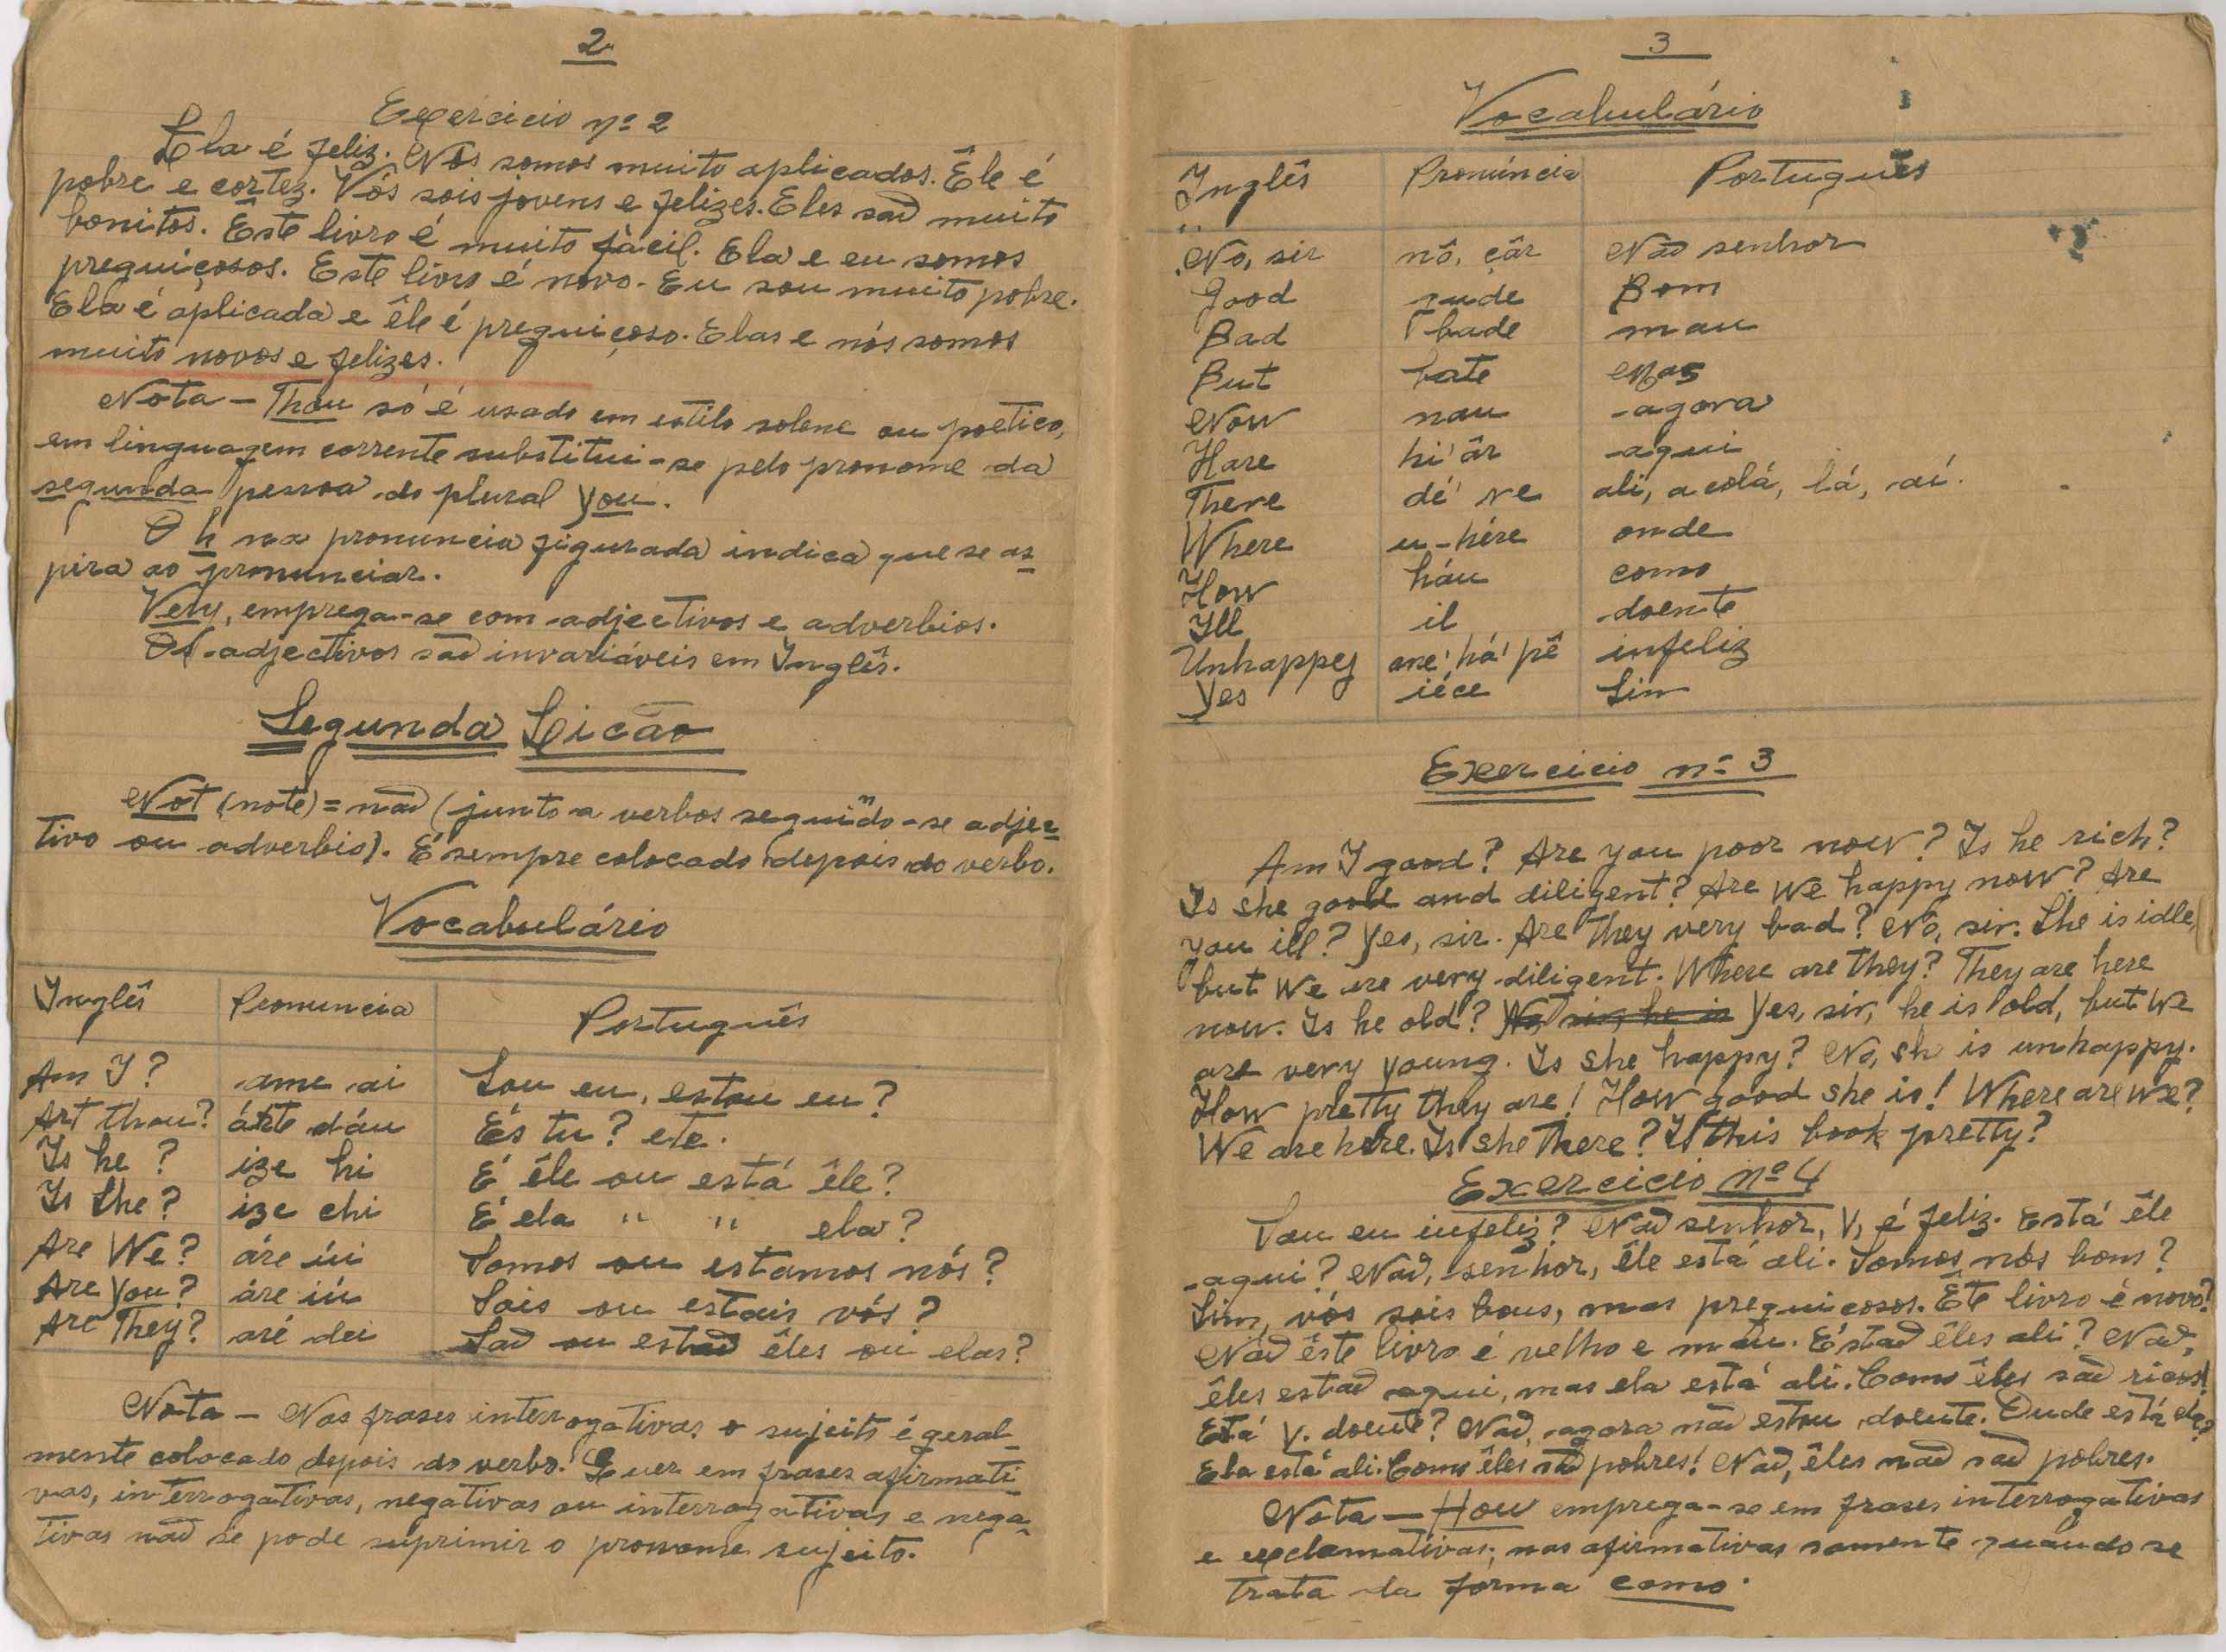 2
Exercicio nº 2
Ela é feliz. Nós somos muito aplicados. Êle é
pobre e cortez. Vós sois jovens e felizes. Eles são muito
bonitos. Êste livro é muito fácil. Ela e eu somos
preguiçosos. Este livro é novo. Eu sou muito pobre.
Ela é aplicada e êle é preguiçoso. Elas e nós somos
muito novos e felizes.
Nota — Thou só é usado em estilo solene ou poetico,
em linguagem corrente substitui-se pelo pronome da
segunda pessoa do plural you.
O h na pronuncia figurada indica que se as-
pira ao pronunciar.
Very, emprega-se com adjectivos e adverbios.
Os adjectivos são invariáveis em Inglês.
Segunda Licão
Not (note) = não (junto a verbos seguindo-se adjec-
tivo ou adverbio). É sempre colocado depois do verbo.
Vocabulário
Inglês Pronuncia Português
Am I? ame ai Sou eu, estou eu?
Art thou? árte dáu És tu? etc.
Is he? ize hi É êle ou está êle?
Is she? ize chi É ela " " ela?
Are We? áre úi Somos ou estamos nós?
Are you? áre iú Sois ou estais vós?
Are They? aré dei São ou estão êles ou elas?
Nota — Nas frases interrogativas o sujeito é geral-
mente colocado depois do verbo. Quer em frases afirmati-
vas, interrogativas, negativas ou interrogativas e nega-
tivas não se pode suprimir o pronome sujeito.
3
Vocabulário
Inglês Pronúncia Português
No, sir nô, çâr Não senhor
Good gude Bom
Bad bade mau
But bate Mas
Now nau agora
Hare hi'âr aqui
There dé're ali, acolá, lá, aí.
Where u-hére onde
How háu como
Ill il doente
Unhappy ane'há'pê infeliz
Yes iéce Sim
Exercicio nº 3
Am I good? Are you poor now? Is he rich?
Is she good and diligent? Are we happy now? Are
you ill? Yes, sir. Are They very bad? No, sir. She is idle,
but We are very diligent. Where are they? They are here
now. Is he old? No sir, he is Yes, sir, he is old, but We
are very young. Is She happy? No, sh is unhappy.
How pretty they are! How good she is! Where are we?
We are here. Is she There? Is this book pretty?
Exercicio nº 4
Sou eu infeliz? Não senhor, V. é feliz. Está êle
aqui? Não, senhor, êle está ali. Somos nós bons?
Sim, vós sois bons, mas preguiçosos. Ête livro é novo?
Não êste livro é velho e mau. Estão êles ali? Não,
êles estão aqui, mas ela está ali. Como êles são ricos!
Está V. doente? Não, agora não estou doente. Onde está ela?
Ela está ali. Como êles são pobres! Não, êles não são pobres.
Nota — How emprega-se em frases interrogativas
e exclamativas; nas afirmativas somente quando se
trata da forma como.